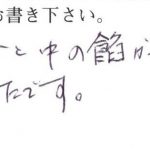 お書き下さい。
と中の餡が
たです。